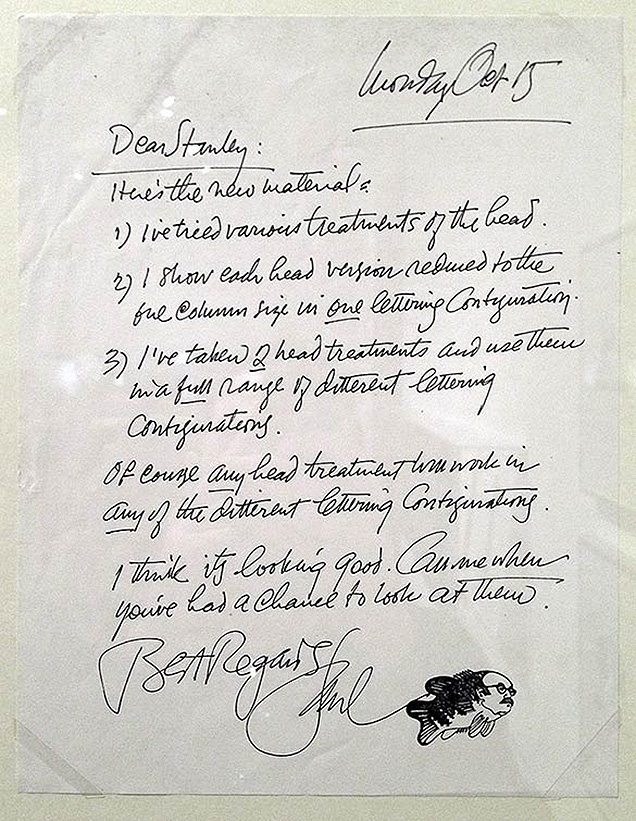 Monday Oct 15
Dear Stanley:
Here's the new material:
1) I've tried various treatments of the head.
2) I show each head version reduced to the
one column size in one lettering configuration.
3) I've taken 2 head treatments and use them
in a full range of different lettering
configurations.
Of course any head treatment will work in
any of the different lettering configurations.
I think its looking good. Call me when
you've had a chance to look at them.
Best Regards,
Saul